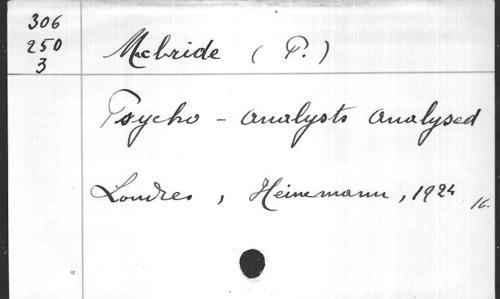 306
250
3
Mcbride ( P. )
Psycho - analysts analysed
Londres , Heinemann , 1924
16.